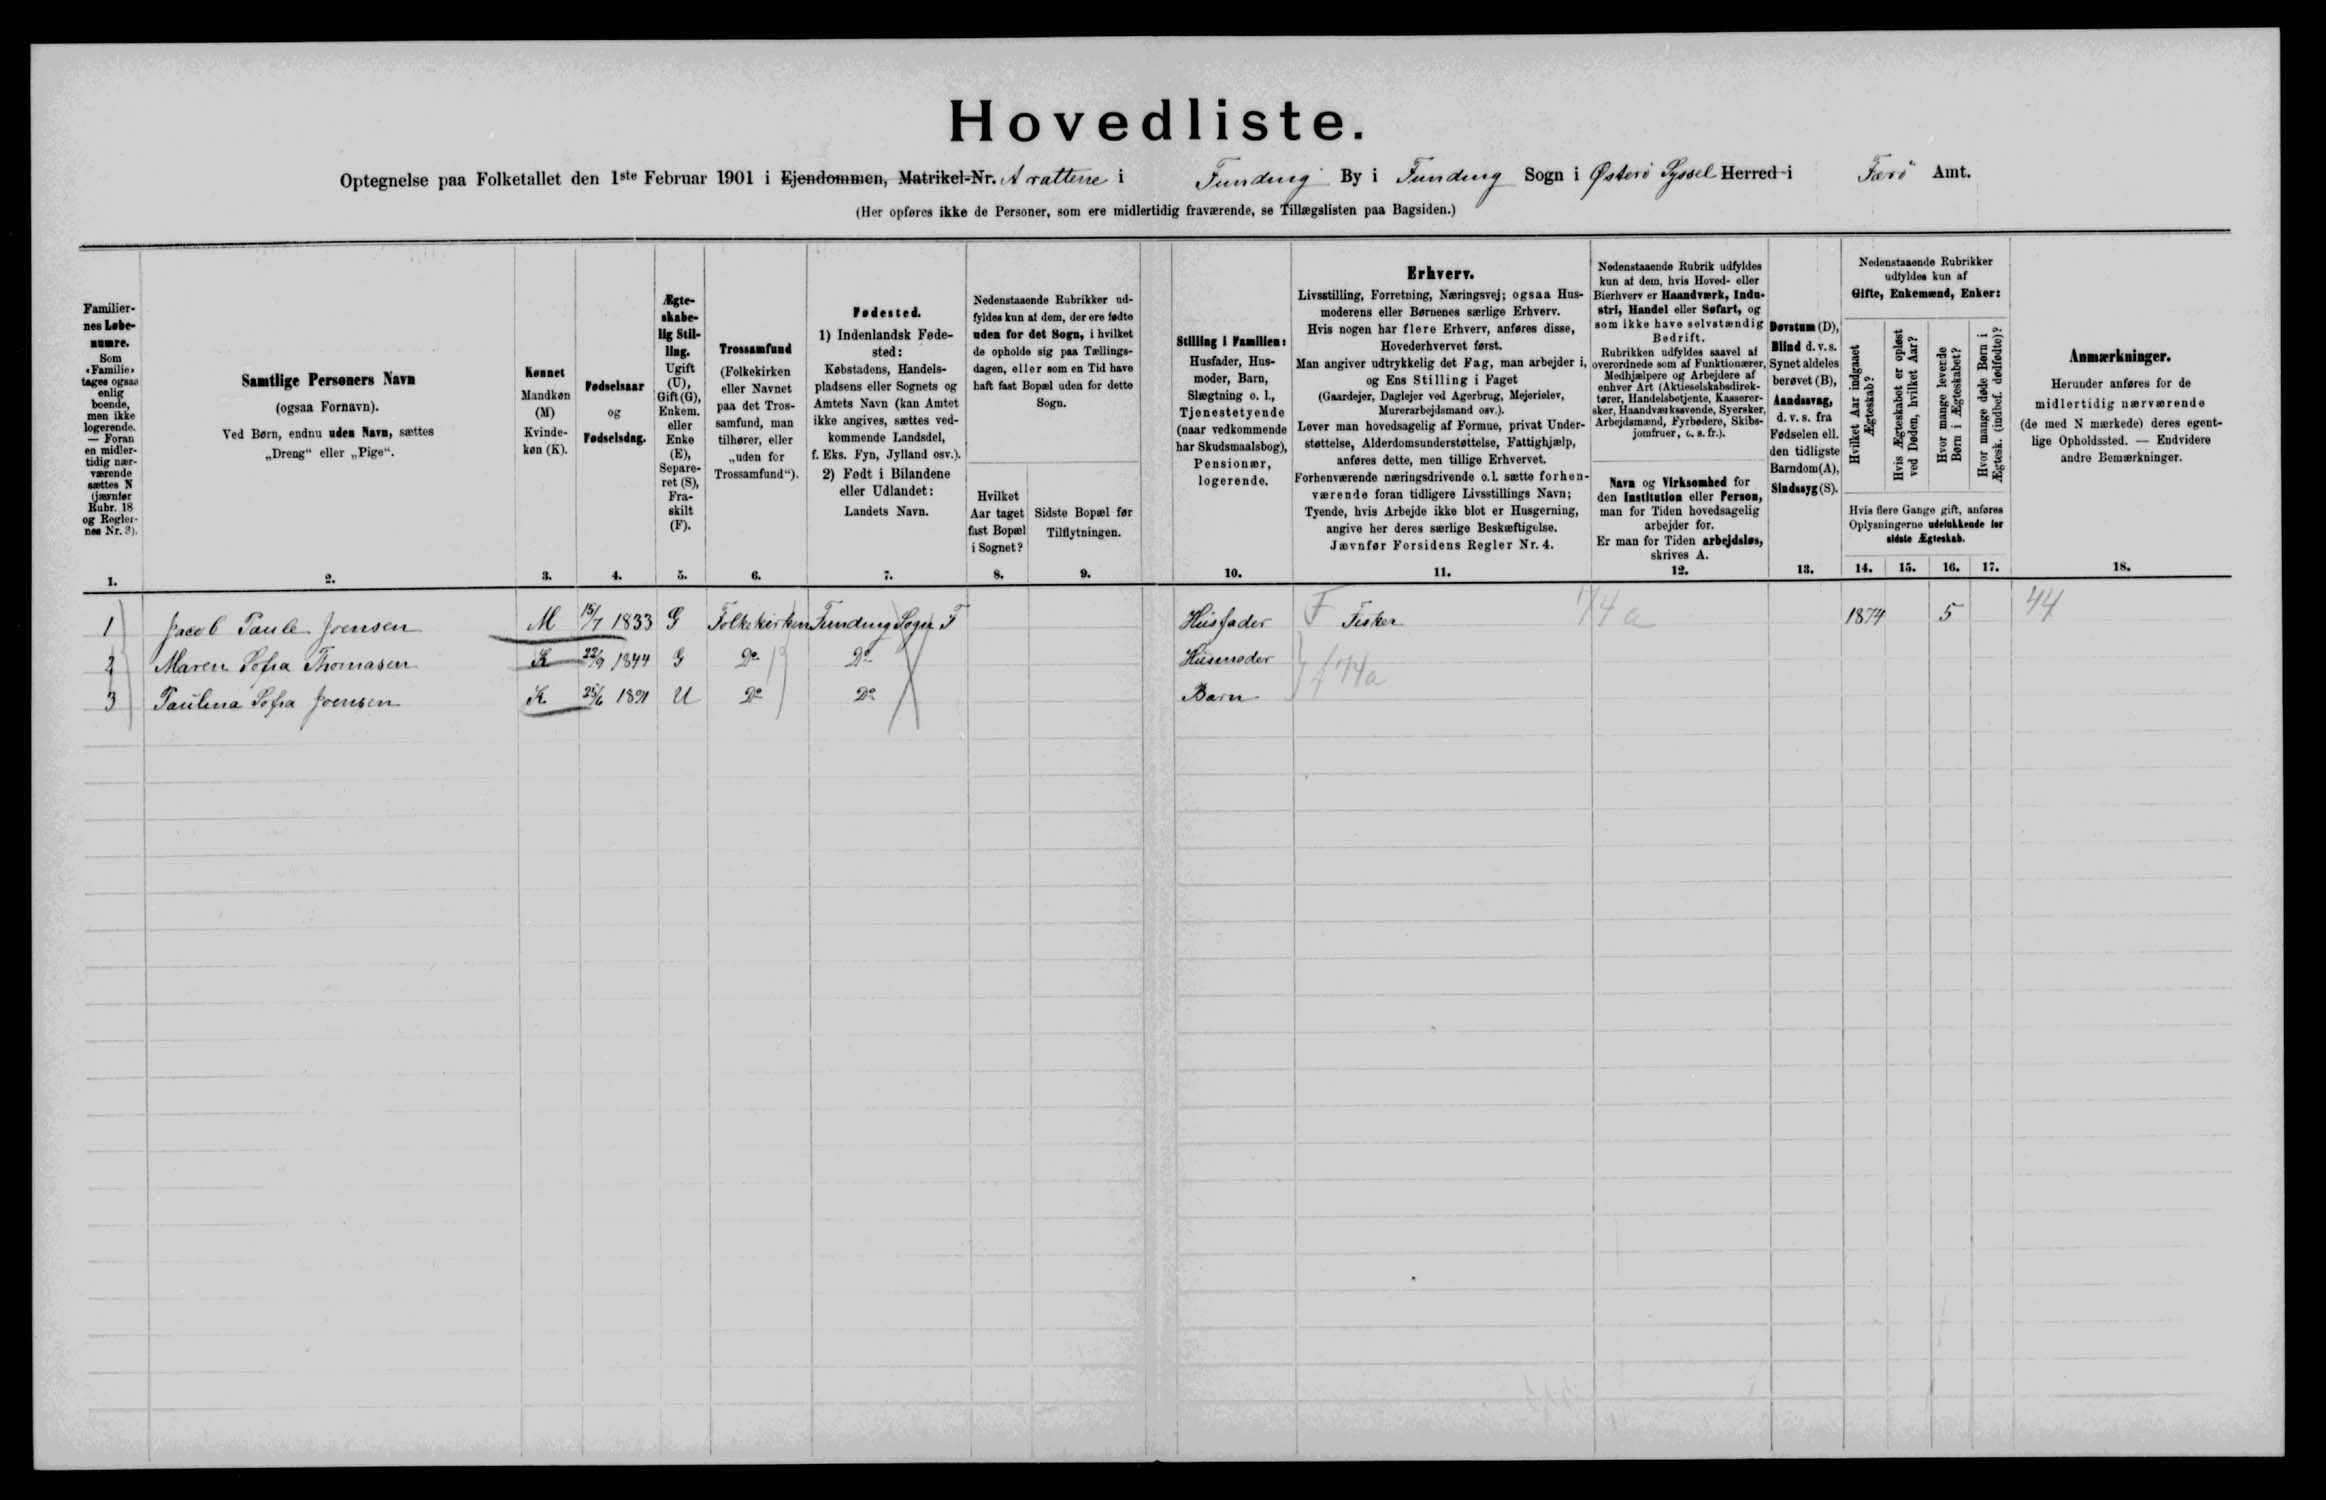 Hovedliste.
Optegnelse paa Folketallet den 1ste Februar 1901 i Ejendommen, Matrikel-Nr. A rattene i Funding By i Funding Sogn i Østerö Syssel Herred i Færö Amt.
(Her opføres ikke de Personer, som ere midlertidig fraværende, se Tillægslisten paa Bagsiden.)
Familier-
nes Løbe-
numre.
Som
«Familie»
tages ogsaa
enlig
boende,
men ikke
logerende.
— Foran
en midler-
tidig nær-
værende
sættes N
(jævnfør
Rubr. 18
og Regler-
nes Nr. 3).
1.
Samtlige Personers Navn
(ogsaa Fornavn).
Ved Børn, endnu uden Navn, sættes
„Dreng“ eller „Pige“.
2.
Kønnet
Mandkøn
(M)
Kvinde-
køn (K).
3.
Fødselsaar
og
Fødselsdag.
4.
Ægte-
skabe-
lig Stil-
ling.
Ugift
(U),
Gift (G),
Enkem.
eller
Enke
(E),
Separe-
ret (S),
Fra-
skilt
(F).
5.
Trossamfund
(Folkekirken
eller Navnet
paa det Tros-
samfund, man
tilhører, eller
„uden for
Trossamfund“).
6.
Fødested.
1) Indenlandsk Føde-
sted:
Købstadens, Handels-
pladsens eller Sognets og
Amtets Navn (kan Amtet
ikke angives, sættes ved-
kommende Landsdel,
f. Eks. Fyn, Jylland osv.).
2) Født i Bilandene
eller Udlandet:
Landets Navn.
7.
Nedenstaaende Rubrikker ud-
fyldes kun af dem, der ere fødte
uden for det Sogn, i hvilket
de opholde sig paa Tællings-
dagen, eller som en Tid have
haft fast Bopæl uden for dette
Sogn.
Hvilket
Aar taget
fast Bopæl
i Sognet?
8.
Sidste Bopæl før
Tilflytningen.
9.
Stilling i Familien:
Husfader, Hus-
moder, Barn,
Slægtning o. l.,
Tjenestetyende
(naar vedkommende
har Skudsmaalsbog),
Pensionær,
logerende.
10.
Erhverv.
Livsstilling, Forretning, Næringsvej; ogsaa Hus-
moderens eller Børnenes særlige Erhverv.
Hvis nogen har flere Erhverv, anføres disse,
Hovederhvervet først.
Man angiver udtrykkelig det Fag, man arbejder i,
og Ens Stilling i Faget
(Gaardejer, Daglejer ved Agerbrug, Mejerielev,
Murerarbejdsmand osv.).
Lever man hovedsagelig af Formue, privat Under-
støttelse, Alderdomsunderstøttelse, Fattighjælp,
anføres dette, men tillige Erhvervet.
Forhenværende næringsdrivende o. l. sætte forhen-
værende foran tidligere Livsstillings Navn;
Tyende, hvis Arbejde ikke blot er Husgerning,
angive her deres særlige Beskæftigelse.
Jævnfør Forsidens Regler Nr. 4.
11.
Nedenstaaende Rubrik udfyldes
kun af dem, hvis Hoved- eller
Bierhverv er Haandværk, Indu-
stri, Handel eller Søfart, og
som ikke have selvstændig
Bedrift.
Rubrikken udfyldes saavel af
overordnede som af Funktionærer,
Medhjælpere og Arbejdere af
enhver Art (Aktieselskabsdirek-
tører, Handelsbetjente, Kasserer-
sker, Haandværkssvende, Syersker,
Arbejdsmænd, Fyrbødere, Skibs-
jomfruer, o. s. fr.).
Navn og Virksomhed for
den Institution eller Person,
man for Tiden hovedsagelig
arbejder for.
Er man for Tiden arbejdsløs,
skrives A.
12.
Døvstum (D),
Blind d. v. s.
Synet aldeles
berøvet (B),
Aandssvag,
d. v. s. fra
Fødselen ell.
den tidligste
Barndom (A),
Sindssyg (S).
13.
Nedenstaaende Rubrikker
udfyldes kun af
Gifte, Enkemænd, Enker:
Hvilket Aar indgaaet
Ægteskab?
Hvis Ægteskabet er opløst
ved Døden, hvilket Aar?
Hvor mange levende
Børn i Ægteskabet?
Hvor mange døde Børn i
Ægtesk. (indbef. dødfødte)?
Hvis flere Gange gift, anføres
Oplysningerne udelukkende for
sidste Ægteskab.
14. 15. 16. 17.
Anmærkninger.
Herunder anføres for de
midlertidig nærværende
(de med N mærkede) deres egent-
lige Opholdssted. — Endvidere
andre Bemærkninger.
18.
1 Jacob Paule Joensen M 15/7 1833 G Folkekirken Funding Sogn F Husfader F Fisker 174a 1874 5 44
2 Maren Sofia Thomasen K 22/9 1844 G Do Do Husmoder
3 Paulina Sofia Joensen K 25/6 1891 U Do Do Barn